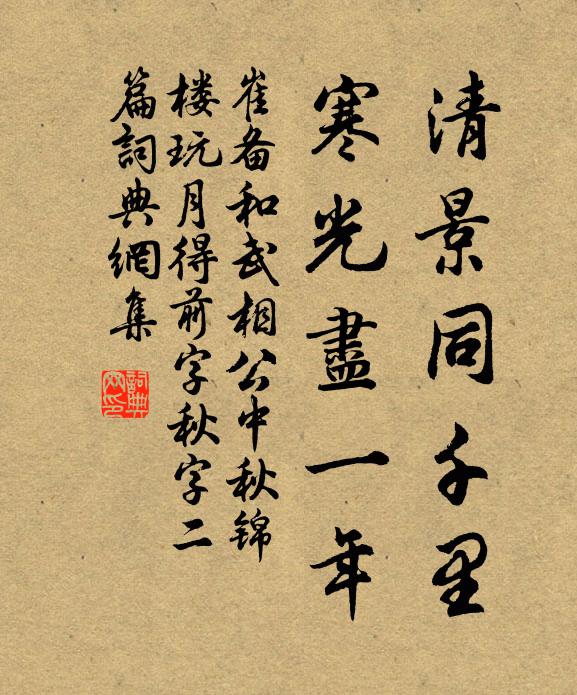 清景同千里
寒光盡一年
崔备和武相公中秋锦
楼玩月得前字秋字二
篇詞典網集
詞典網印